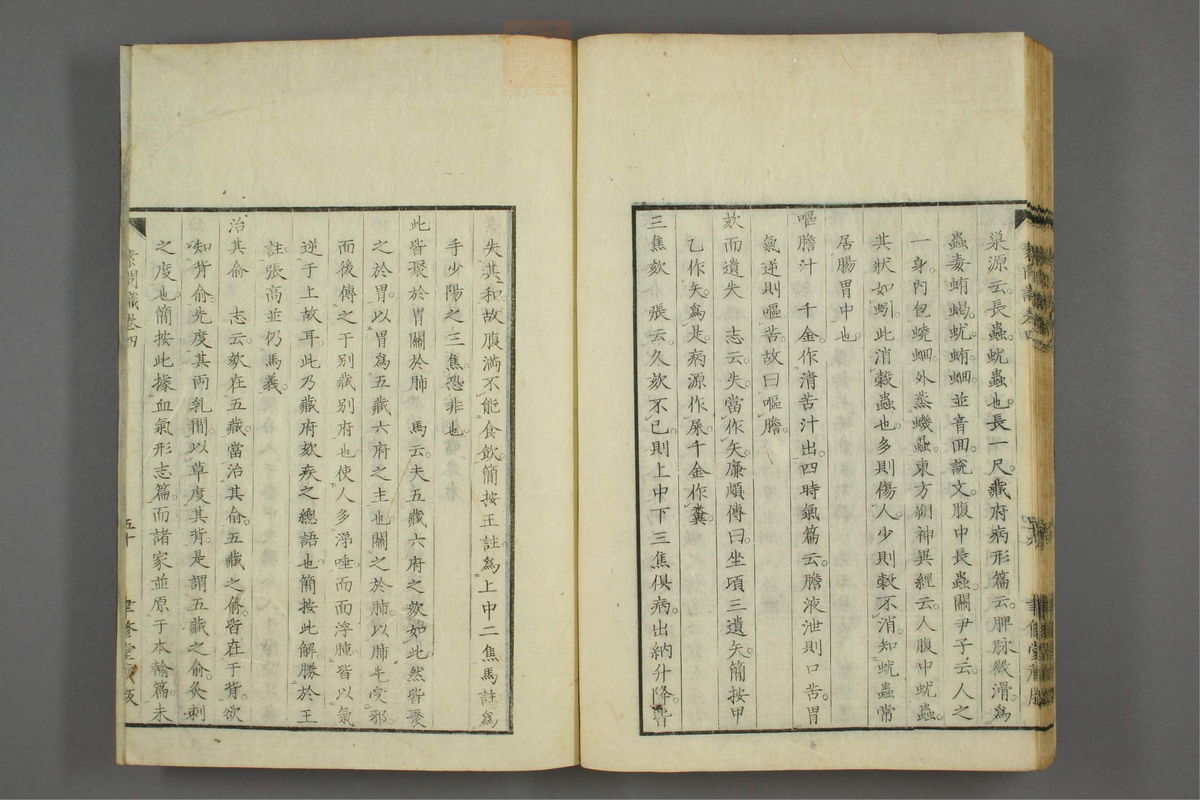 巢源云。長蟲蚘蟲也。長一尺。藏府病形篇云。脾脉微滑爲
蟲毒蛕蝎。蚘蛕蛔並音囬。說文。腹中長蟲。關尹子云。人之
一身。內包蟯蛔。外蒸蟣蝨。東方朔神異經云。人腹中蚘蟲。
其狀如蚓。此消穀蟲也。多則傷人。少則穀不消。知蚘蟲常
居腸胃中也。
嘔膽汁　千金作清苦汁出。四時氣篇云。膽液泄則口苦。胃
氣逆則嘔苦。故曰嘔膽。
欬而遺失　志云。失。當作矢。廉頗傳曰。坐頃三遺矢。簡按甲
乙作矢。爲是。病源作屎。千金作糞。
三焦欬　張云。久欬不已。則上中下三焦俱病。出納升降。皆
失其和。故腹滿不能食飲。簡按王註爲上中二焦。馬註爲
手少陽之三焦。恐非也。
此皆聚於胃關於肺　馬云。夫五藏六府之欬如此。然皆聚
之於胃。以胃爲五藏六府之主也。關之於肺。以肺先受邪。
而後傳之于別藏別府也。使人多涕唾而面浮腫。皆以氣
逆于上故耳。此乃藏府欬疾之總語也。簡按此解勝於王
註。張高並仍馬義。
治其俞　志云。欬在五藏。當治其俞。五藏之俞。皆在于背。欲
知背俞。先度其兩乳間。以草度其背。是謂五藏之俞。灸刺
之度也。簡按此據血氣形志篇。而諸家並原于本輸篇。未
素問識卷四
五十
聿修堂藏版